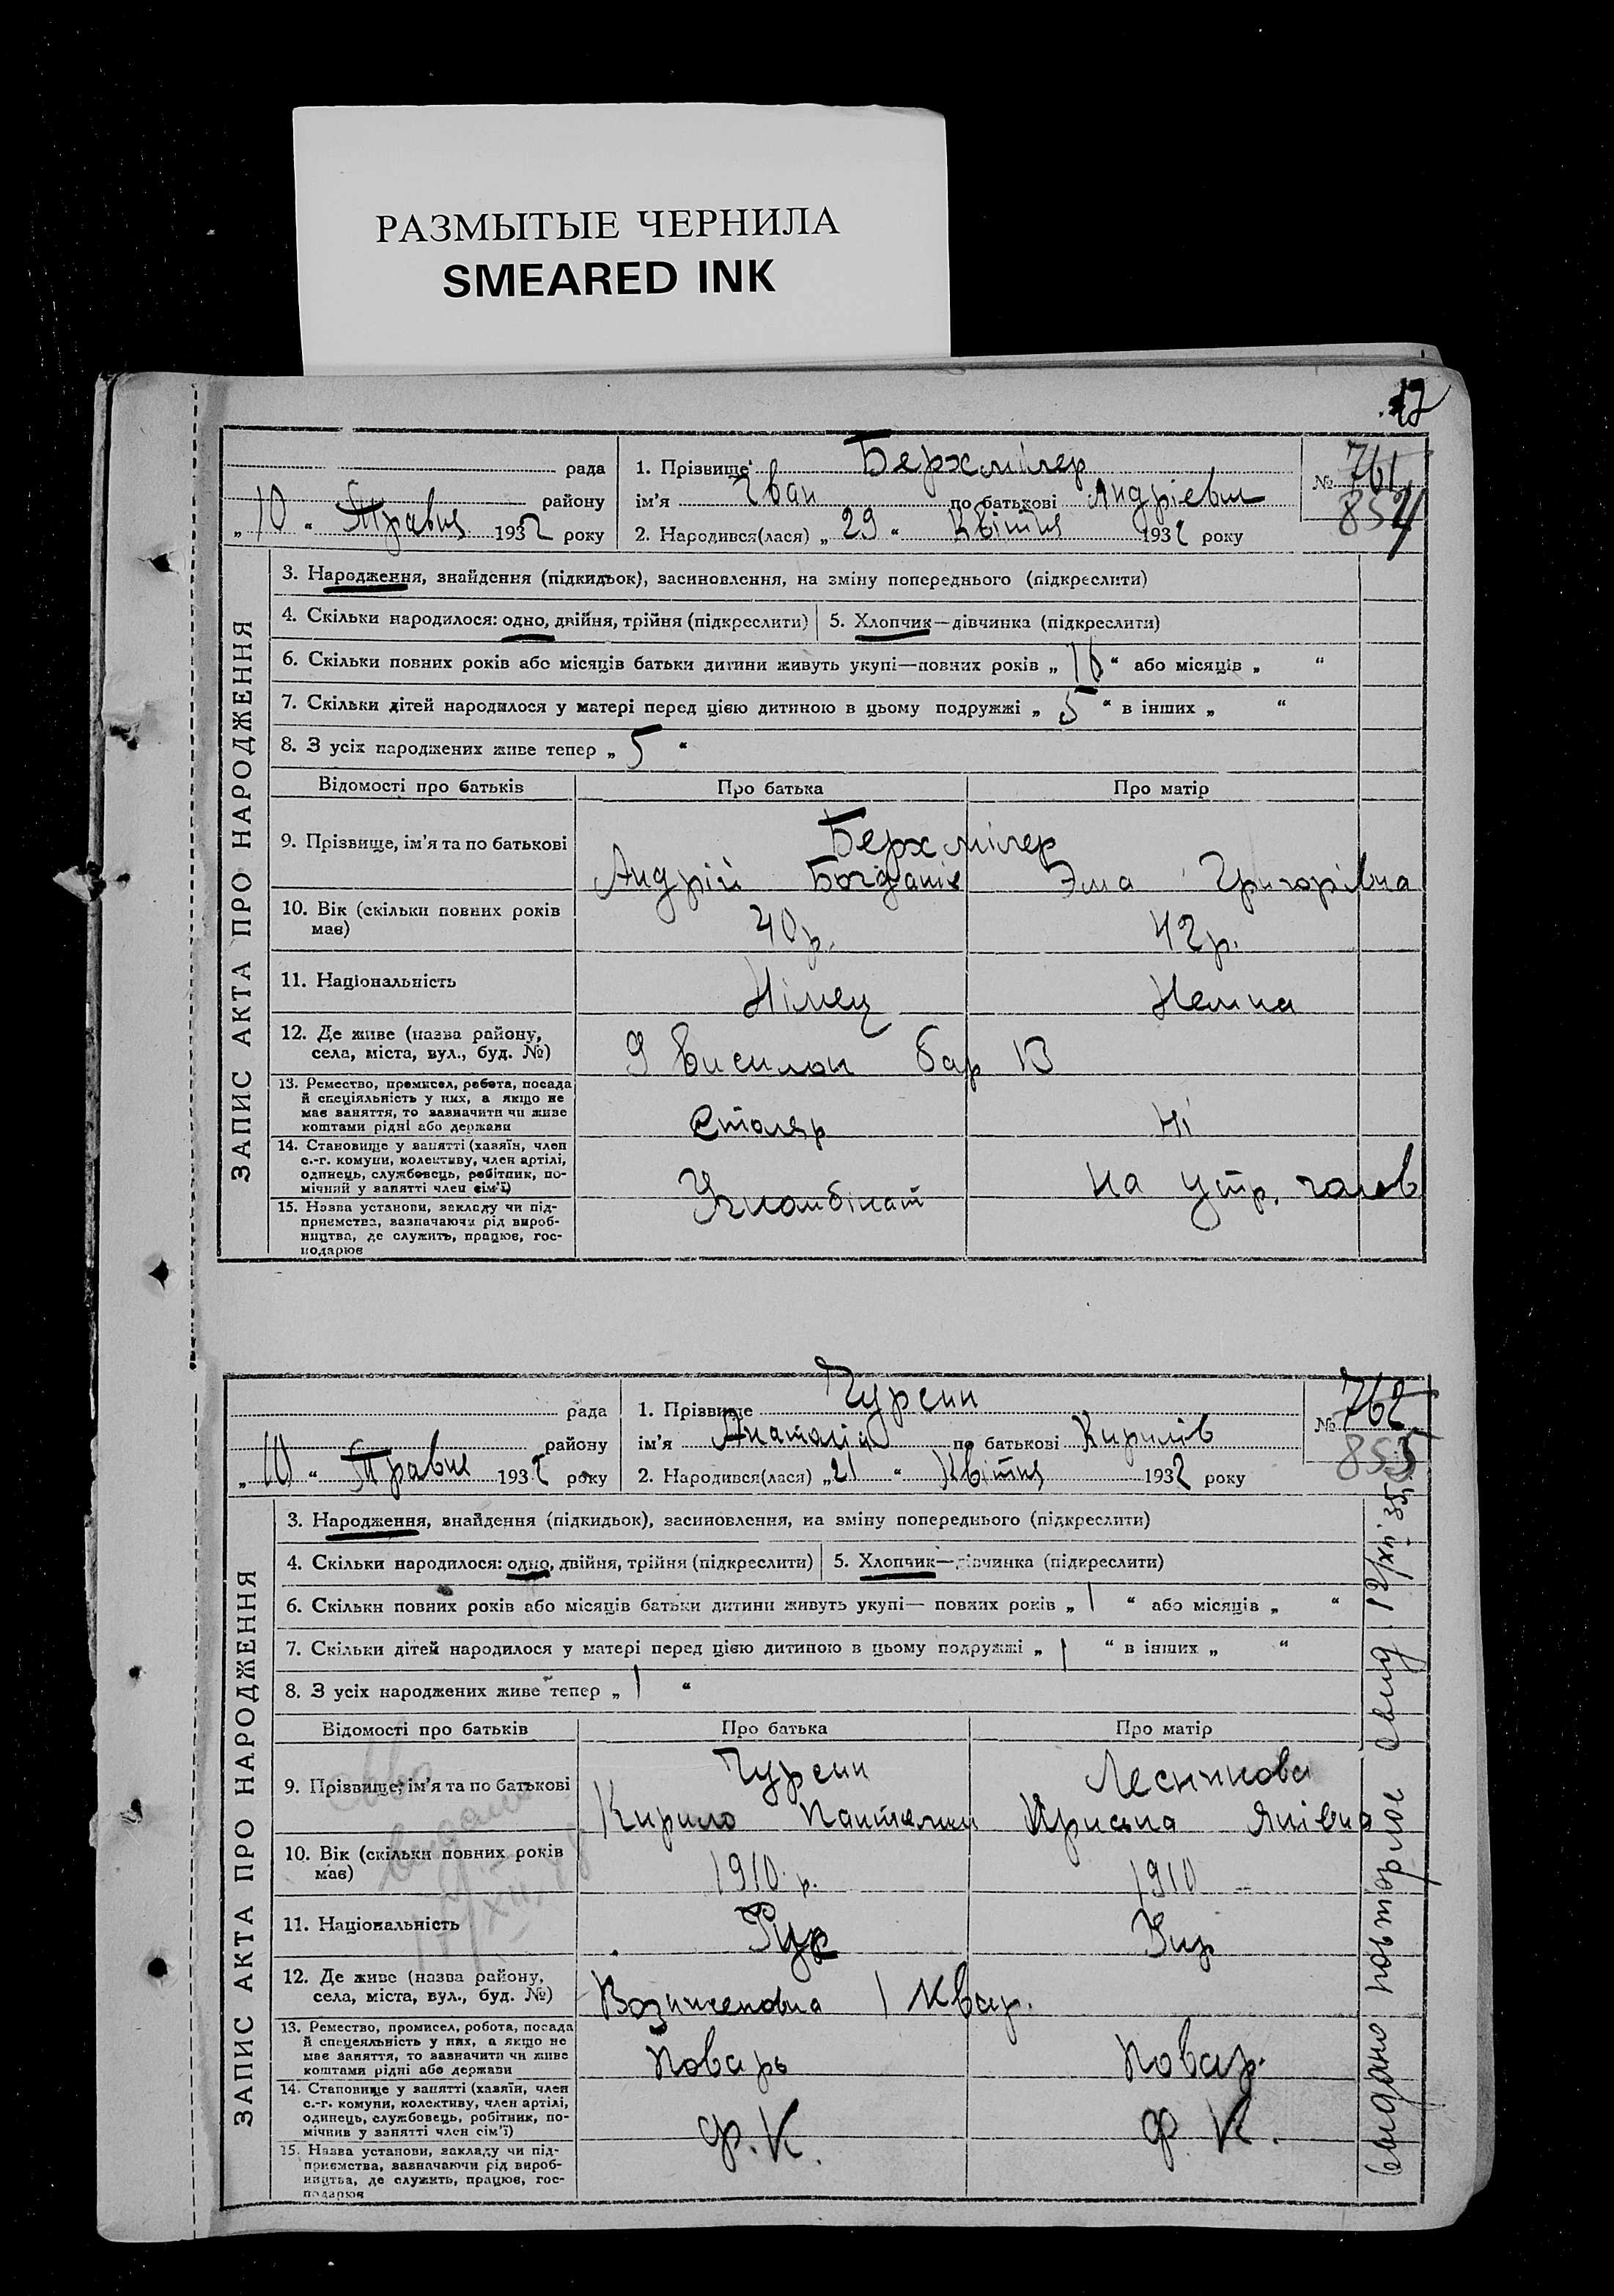 РАЗМЫТЫЕ ЧЕРНИЛА
SMEARED INK
рада
району
„ 10 “ Травня 1932 року
1. Прізвище Берхмілер
ім’я Іван по батькові Андрієвич
2. Народився(лася) „ 29 “ Квітня 1932 року
№ 761
854
ЗАПИС АКТА ПРО НАРОДЖЕННЯ
3. Народження, знайдення (підкидьок), засиновлення, на зміну попереднього (підкреслити)
4. Скільки народилося: одно, двійня, трійня (підкреслити) 5. Хлопчик—дівчинка (підкреслити)
6. Скільки повних років або місяців батьки дитини живуть укупі—повних років „ 16 “ або місяців „ “
7. Скільки дітей народилося у матері перед цією дитиною в цьому подружжі „ 5 “ в інших „ “
8. З усіх народжених живе тепер „ 5 “
Відомості про батьків Про батька Про матір
9. Прізвище, ім’я та по батькові
Берхмілер
Андрій Богданів Эма Григорівна
10. Вік (скільки повних років має)
40 р. 42 р.
11. Національність
Німец Немка
12. Де живе (назва району, села, міста, вул., буд. №)
9 Висилок бар 13
13. Ремество, промисел, робота, посада
й спеціяльність у них, а якщо не
має заняття, то зазначити чи живе
коштами рідні або держави
Столяр Ні
14. Становище у занятті (хазяїн, член
с.-г. комуни, колективу, член артілі,
одинець, службовець, робітник, по-
мічний у занятті член сім’ї)
на утр.
15. Назва установи, закладу чи під-
приємства, зазначаючи рід вироб-
ництва, де служить, працює, гос-
подарює
рада
району
„ 10 “ Травня 1932 року
1. Прізвище Чурсин
ім’я Анатолій по батькові Кирилів
2. Народився(лася) „ 21 “ Квітня 1932 року
№ 762
855
ЗАПИС АКТА ПРО НАРОДЖЕННЯ
3. Народження, знайдення (підкидьок), засиновлення, на зміну попереднього (підкреслити)
4. Скільки народилося: одно, двійня, трійня (підкреслити) 5. Хлопчик—дівчинка (підкреслити)
6. Скільки повних років або місяців батьки дитини живуть укупі— повних років „ 1 “ або місяців „ “
7. Скільки дітей народилося у матері перед цією дитиною в цьому подружжі „ 1 “ в інших „ “
8. З усіх народжених живе тепер „ 1 “
Відомості про батьків Про батька Про матір
9. Прізвище, ім’я та по батькові
Чурсин Лесникова
Кирило Яківна
10. Вік (скільки повних років має)
1910 р. 1910
11. Національність
Рус Укр
12. Де живе (назва району, села, міста, вул., буд. №)
1 Квар.
13. Ремество, промисел, робота, посада
й спецеяльність у них, а якщо не
має заняття, то зазначити чи живе
коштами рідні або держави
Поварь Повар.
14. Становище у занятті (хазяїн, член
с.-г. комуни, колективу, член артілі,
одинець, службовець, робітник, по-
мічник у занятті член сім’ї)
Ф. К. Ф. К.
15. Назва установи, закладу чи під-
приємства, зазначаючи рід вироб-
ництва, де служить, працює, гос-
подарює
выдано повторное свид 12/XII 35